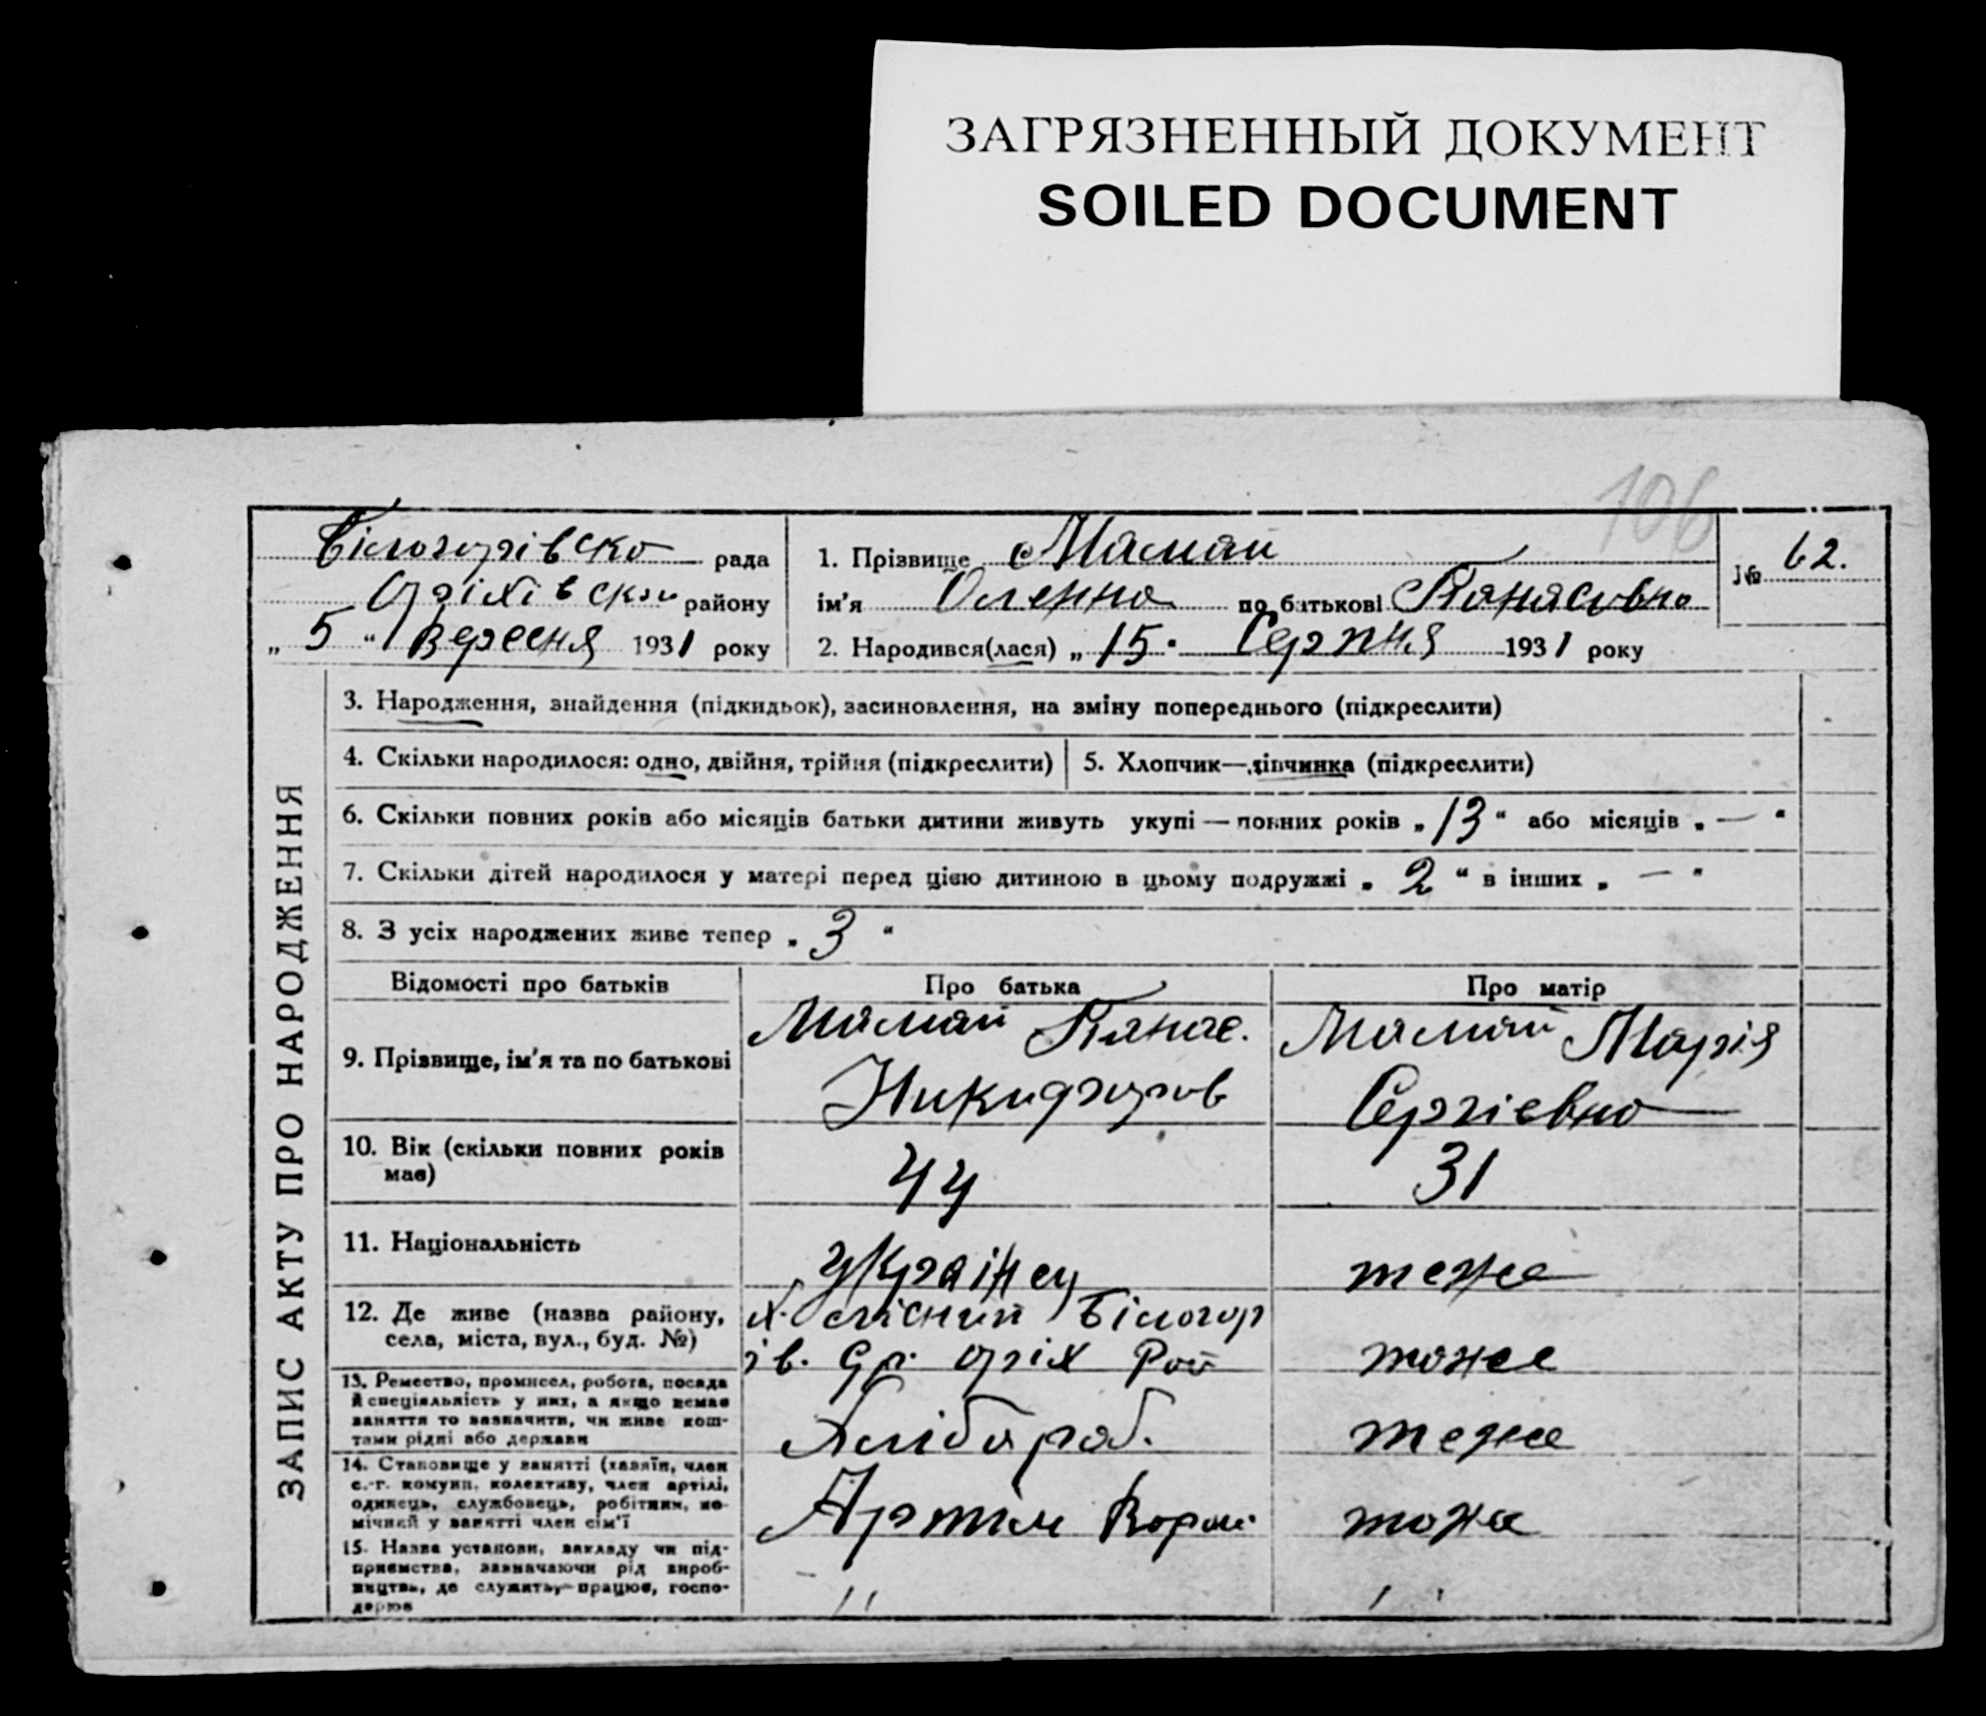 ЗАГРЯЗНЕННЫЙ ДОКУМЕНТ
SOILED DOCUMENT
106
Білогорівсько рада
Оріхівськ району
„ 5 “ Вересня 1931 року
1. Прізвище Мамай
ім'я Оленна по батькові Панасовно
2. Народився(лася) „ 15 “ Серпня 1931 року
№ 62.
ЗАПИС АКТУ ПРО НАРОДЖЕННЯ
3. Народження, знайдення (підкидьок), засиновлення, на зміну попереднього (підкреслити)
4. Скільки народилося: одно, двійня, трійня (підкреслити)
5. Хлопчик—дівчинка (підкреслити)
6. Скільки повних років або місяців батьки дитини живуть укупі — повних років „ 13 “ або місяців „ — “
7. Скільки дітей народилося у матері перед цією дитиною в цьому подружжі „ 2 “ в інших „ — “
8. З усіх народжених живе тепер „ 3 “
Відомості про батьків
Про батька
Про матір
9. Прізвище, ім'я та по батькові
Мамай Панас.
Никифоров
Мамай Марія
Сергієвно
10. Вік (скільки повних років
має)
44
31
11. Національність
українец
теже
12. Де живе (назва району,
села, міста, вул., буд. №)
х. Білогор
ів. Ср. оріх Рай
тоже
13. Ремество, промисел, робота, посада
й спеціяльність у них, а якщо немає
заняття то зазначити, чи живе кош-
тами рідні або держави
Хлібороб.
теже
14. Становище у занятті (хазяїн, член
с.-г. комуни, колективу, член артілі,
одинець, службовець, робітник, по-
мічний у занятті член сім'ї
Артіль
тоже
15. Назва установи, закладу чи під-
приємства, зазначаючи рід вироб-
ництва, де служить, працює, госпо-
дарює
"
"